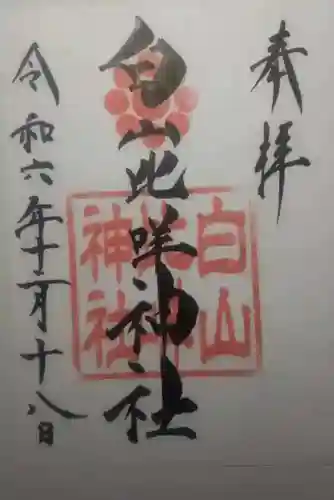 奉拝
白山比咩神社
白山
比咩
神社
令和六年十二月十八日